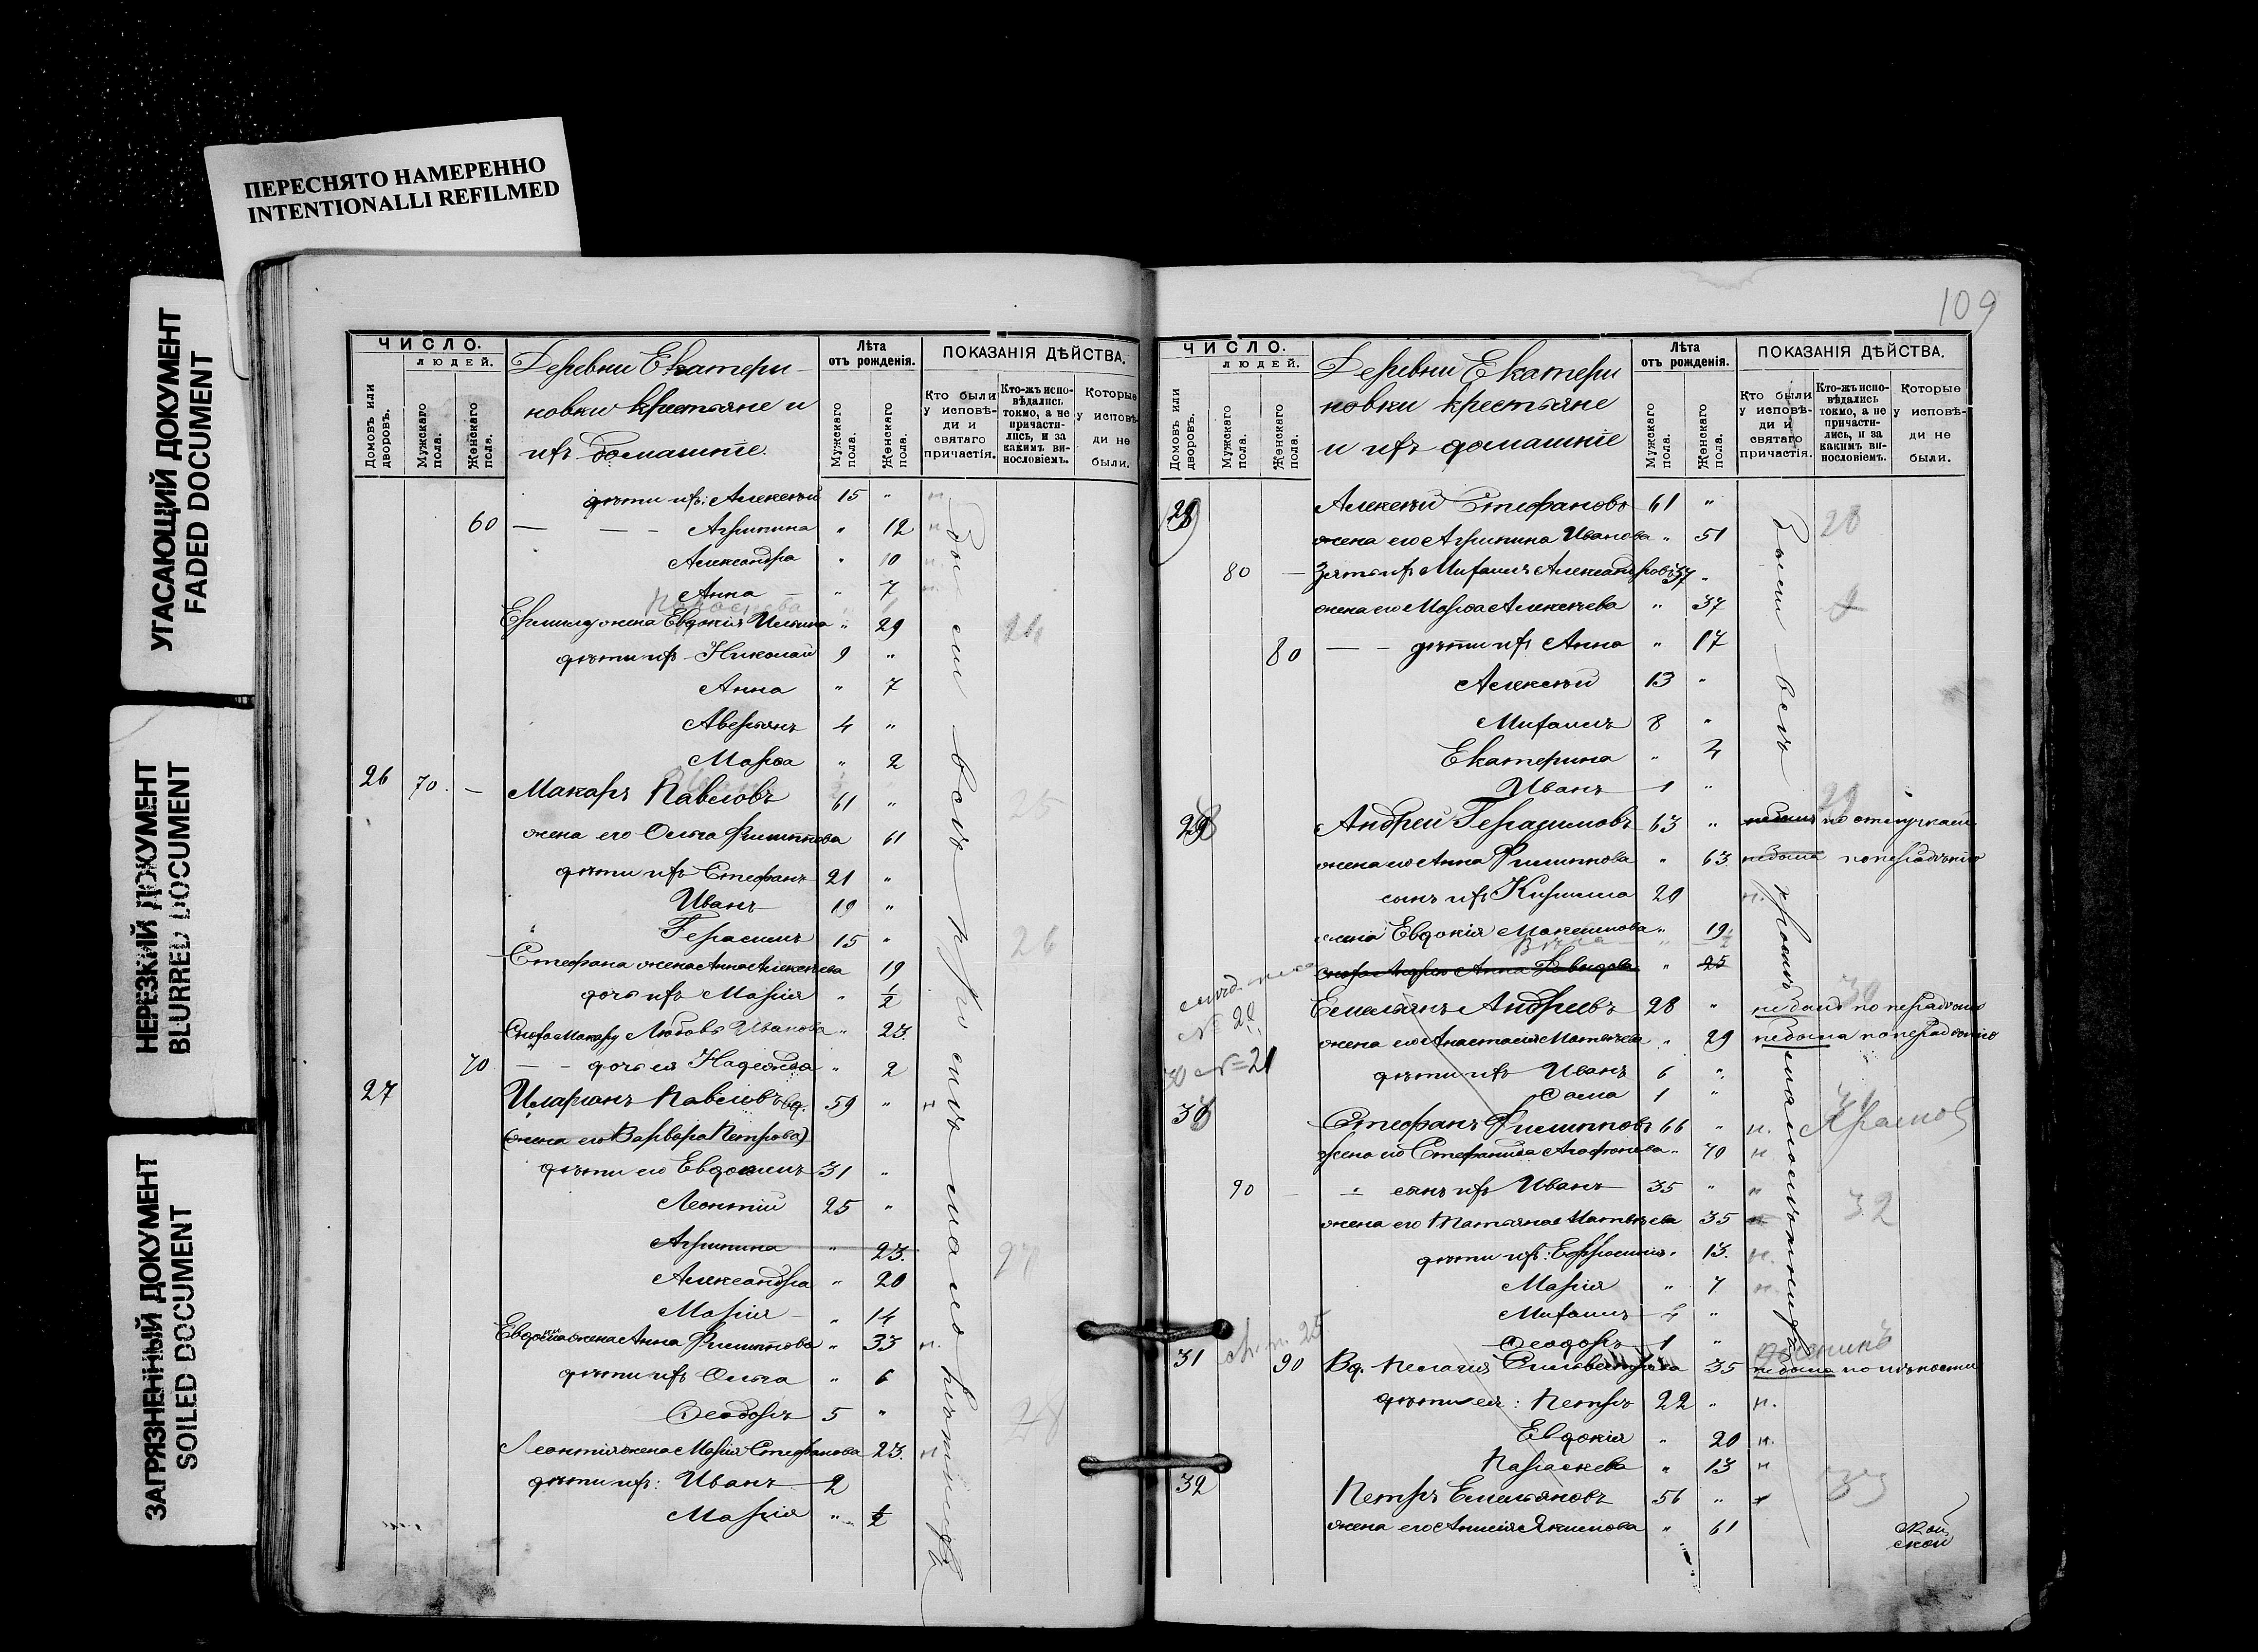 ПЕРЕСНЯТО НАМЕРЕННО
INTENTIONALLI REFILMED
УГАСАЮЩИЙ ДОКУМЕНТ
FADED DOCUMENT
НЕРЕЗКИЙ ДОКУМЕНТ
BLURRED DOCUMENT
ЗАГРЯЗНЕННЫЙ ДОКУМЕНТ
SOILED DOCUMENT
ЧИСЛО.
людей.
Домовъ или дворовъ.
Мужскаго пола.
Женскаго пола.
Деревни Екатери-
новки крестьяне и
ихъ домашніе.
Лѣта
отъ рожденія.
Мужскаго пола.
Женскаго пола.
ПОКАЗАНІЯ ДѢЙСТВА.
Кто были у исповѣди и святаго причастія.
Кто-жъ исповѣдались токмо, а не причастились, и за какимъ винословіемъ.
Которые у исповѣди не были.
дѣти ихъ: Алексѣй 15 " н
60 — — - Агрипина " 12 н
Александра " 10 н.
Анна " 7
Ермила жена Евдокія Ильина " 29 24
дѣти ихъ Николай 9 "
Анна " 7
Аверьянъ 4 "
Марѳа " 2
26 70 — Макаръ Павловъ 61 " 25
жена его Ольга Филиппова 61
дѣти ихъ Стефанъ 21 "
Иванъ 19 "
Герасимъ 15 " 26
Стефана жена Анна Алексѣева 19
дочь ихъ Марія " 1/2
Сноха Макару Любовь Иванова " 23.
70 — - дочь ея Надежда " 2
27 Иларіонъ Павловъ вд. 59 " н
(жена его Варвара Петрова)
дѣти его Евдокимъ 31 "
Леонтій 25 "
Агрипина " 23. 27
Александра " 20
Марія " 14
Евдокима жена Анна Филиппова " 33 н.
дѣти ихъ Ольга " 6
Ѳеодоръ 5 " 28
Леонтія жена Марія Стефанова 23. н
дѣти ихъ: Иванъ 2
Марія " 1/2
Были всѣ кромѣ малолѣтнихъ
109
ЧИСЛО.
людей.
Домовъ или дворовъ.
Мужскаго пола.
Женскаго пола.
Деревни Екатери
новки крестьяне
и ихъ домашніе
Лѣта
отъ рожденія.
Мужскаго пола.
Женскаго пола.
ПОКАЗАНІЯ ДѢЙСТВА.
Кто были у исповѣди и святаго причастія.
Кто-жъ исповѣдались токмо, а не причастились, и за какимъ винословіемъ.
Которые у исповѣди не были.
28 Алексѣй Стефановъ 61 " 28
жена его Агрипина Иванова " 51
80 — Зять ихъ Михаилъ Александровъ 37 "
жена его Марѳа Алексѣева " 37
80 — - дѣти ихъ Анна " 17
Алексѣй 13 "
Михаилъ 8 "
Екатерина " 4
Иванъ 1 " 29
Андрей Герасимовъ 63 " небылъ по отлучкамъ
жена его Анна Филиппова " 63 небыла по нерадѣнію
сынъ ихъ Кирилла 20 н.
жена Евдокія Максимова " 19
сноха Андрею Анна Давидова " 25
Емельянъ Андреевъ 28 " небылъ по нерадѣнію
жена его Анастасія Матвѣева " 29 небыла по нерадѣнію
30 №=21 дѣти ихъ Иванъ 6 "
Ѳома 1 "
30 Стефанъ Филипповъ 66 " н.
жена его Стефанида Агафонова " 70 н
90 — сынъ ихъ Иванъ 35 " н 32
жена его Татьяна Матвѣева 35 н
дѣти ихъ: Ефросинія " 13. н.
Марія " 7 н
Михаилъ 4 "
Ѳеодоръ 1 "
31 90 Вд. Пелагія Сильвестрова 35 небыла
дѣти ея: Петръ 22 " н.
Евдокія " 20 н.
Параскева " 13 н
32 Петръ Емельяновъ 56 " 33
жена его Анисія Якимова " 61
Были всѣ кромѣ малолѣтнихъ